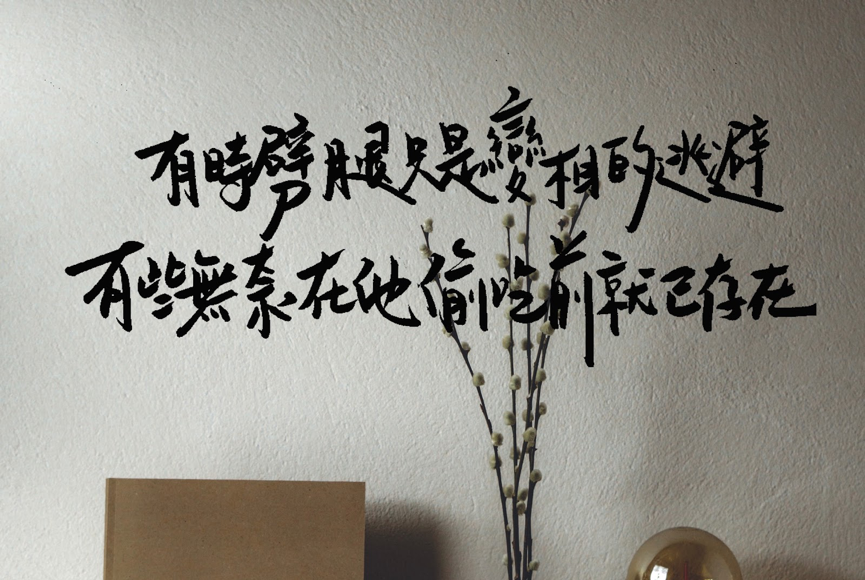 有時劈腿只是變相的逃避
有些無奈在他偷吃前就已存在